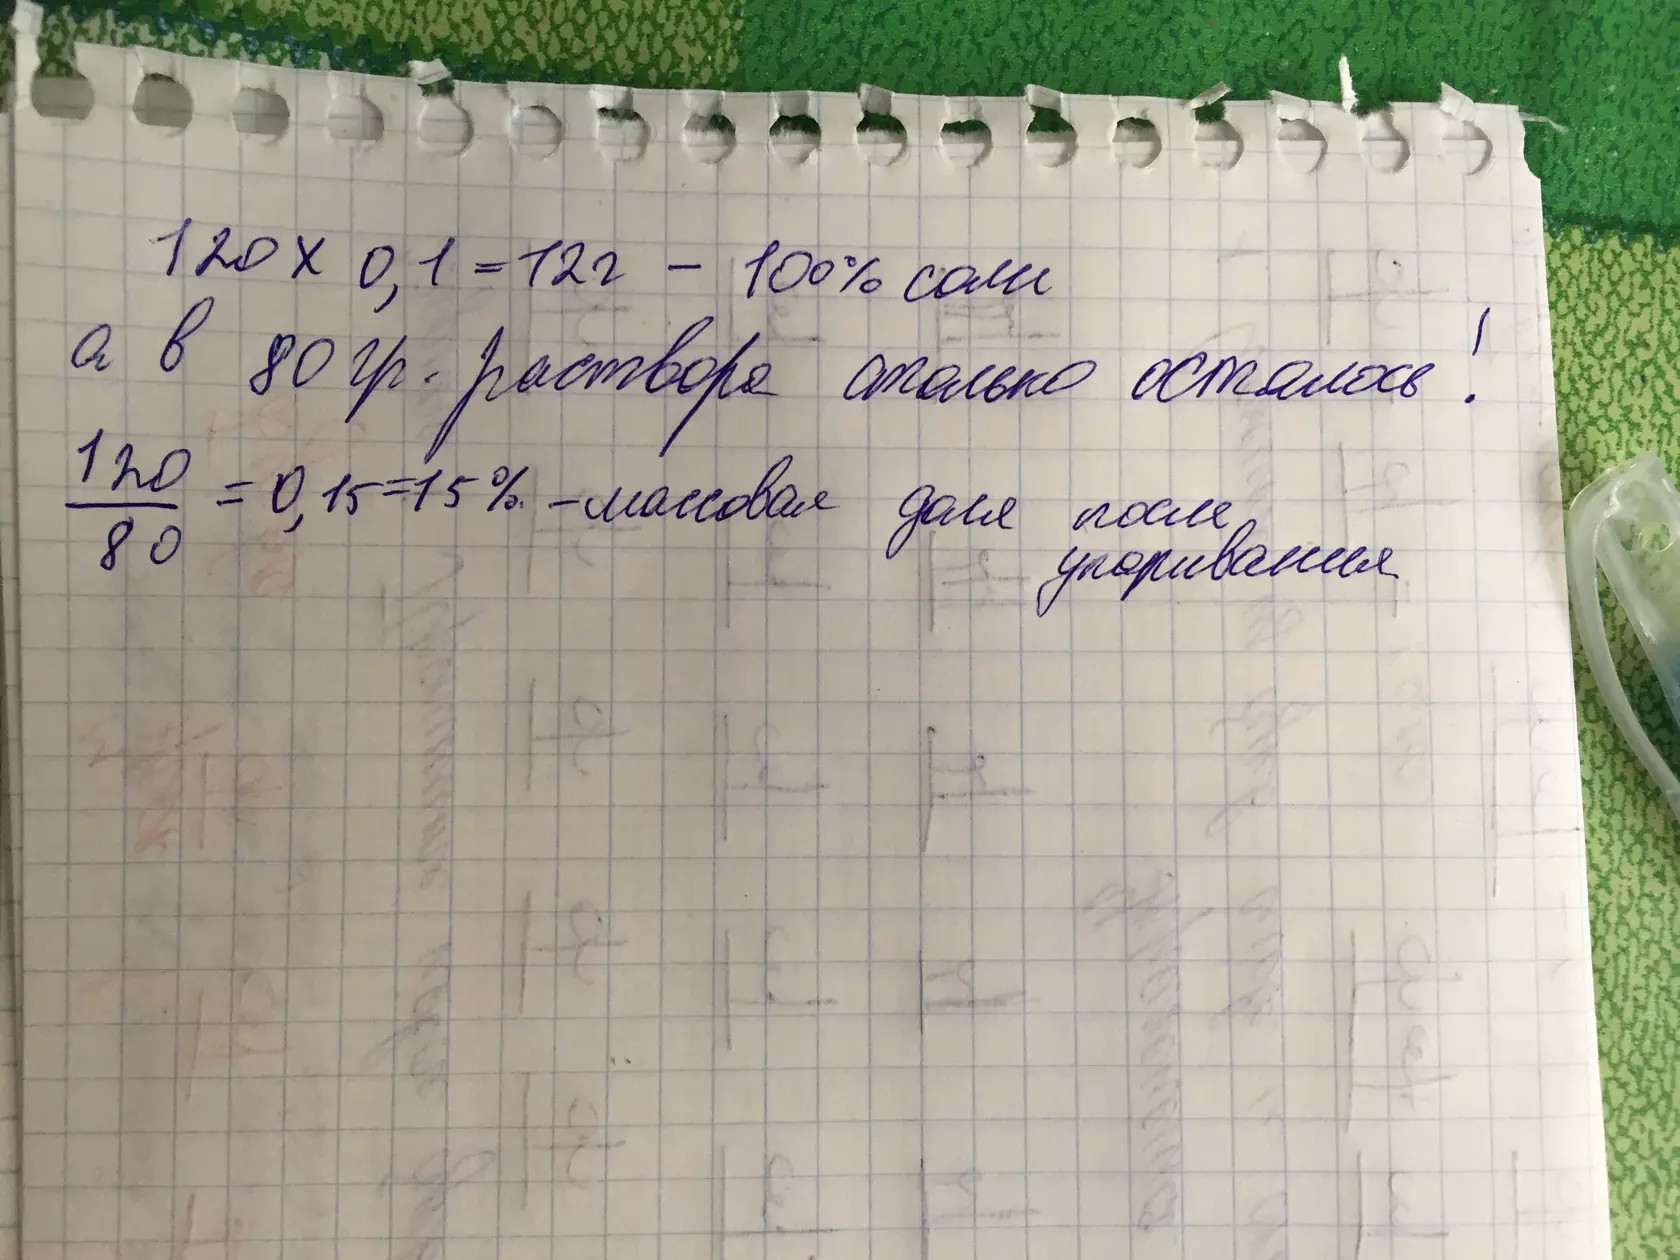 120 х 0,1 = 12г - 100% соли
а в 80 гр. раствора столько осталось!
120
80
= 0,15 = 15% - массовая доля после
упаривания